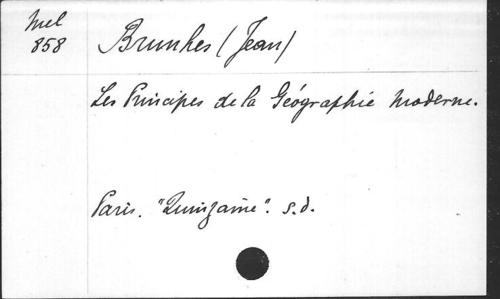 Mel
858
Brunhes (Jean)
Les Principes de la Géographie moderne.
Paris. "Quinzaine". s.d.